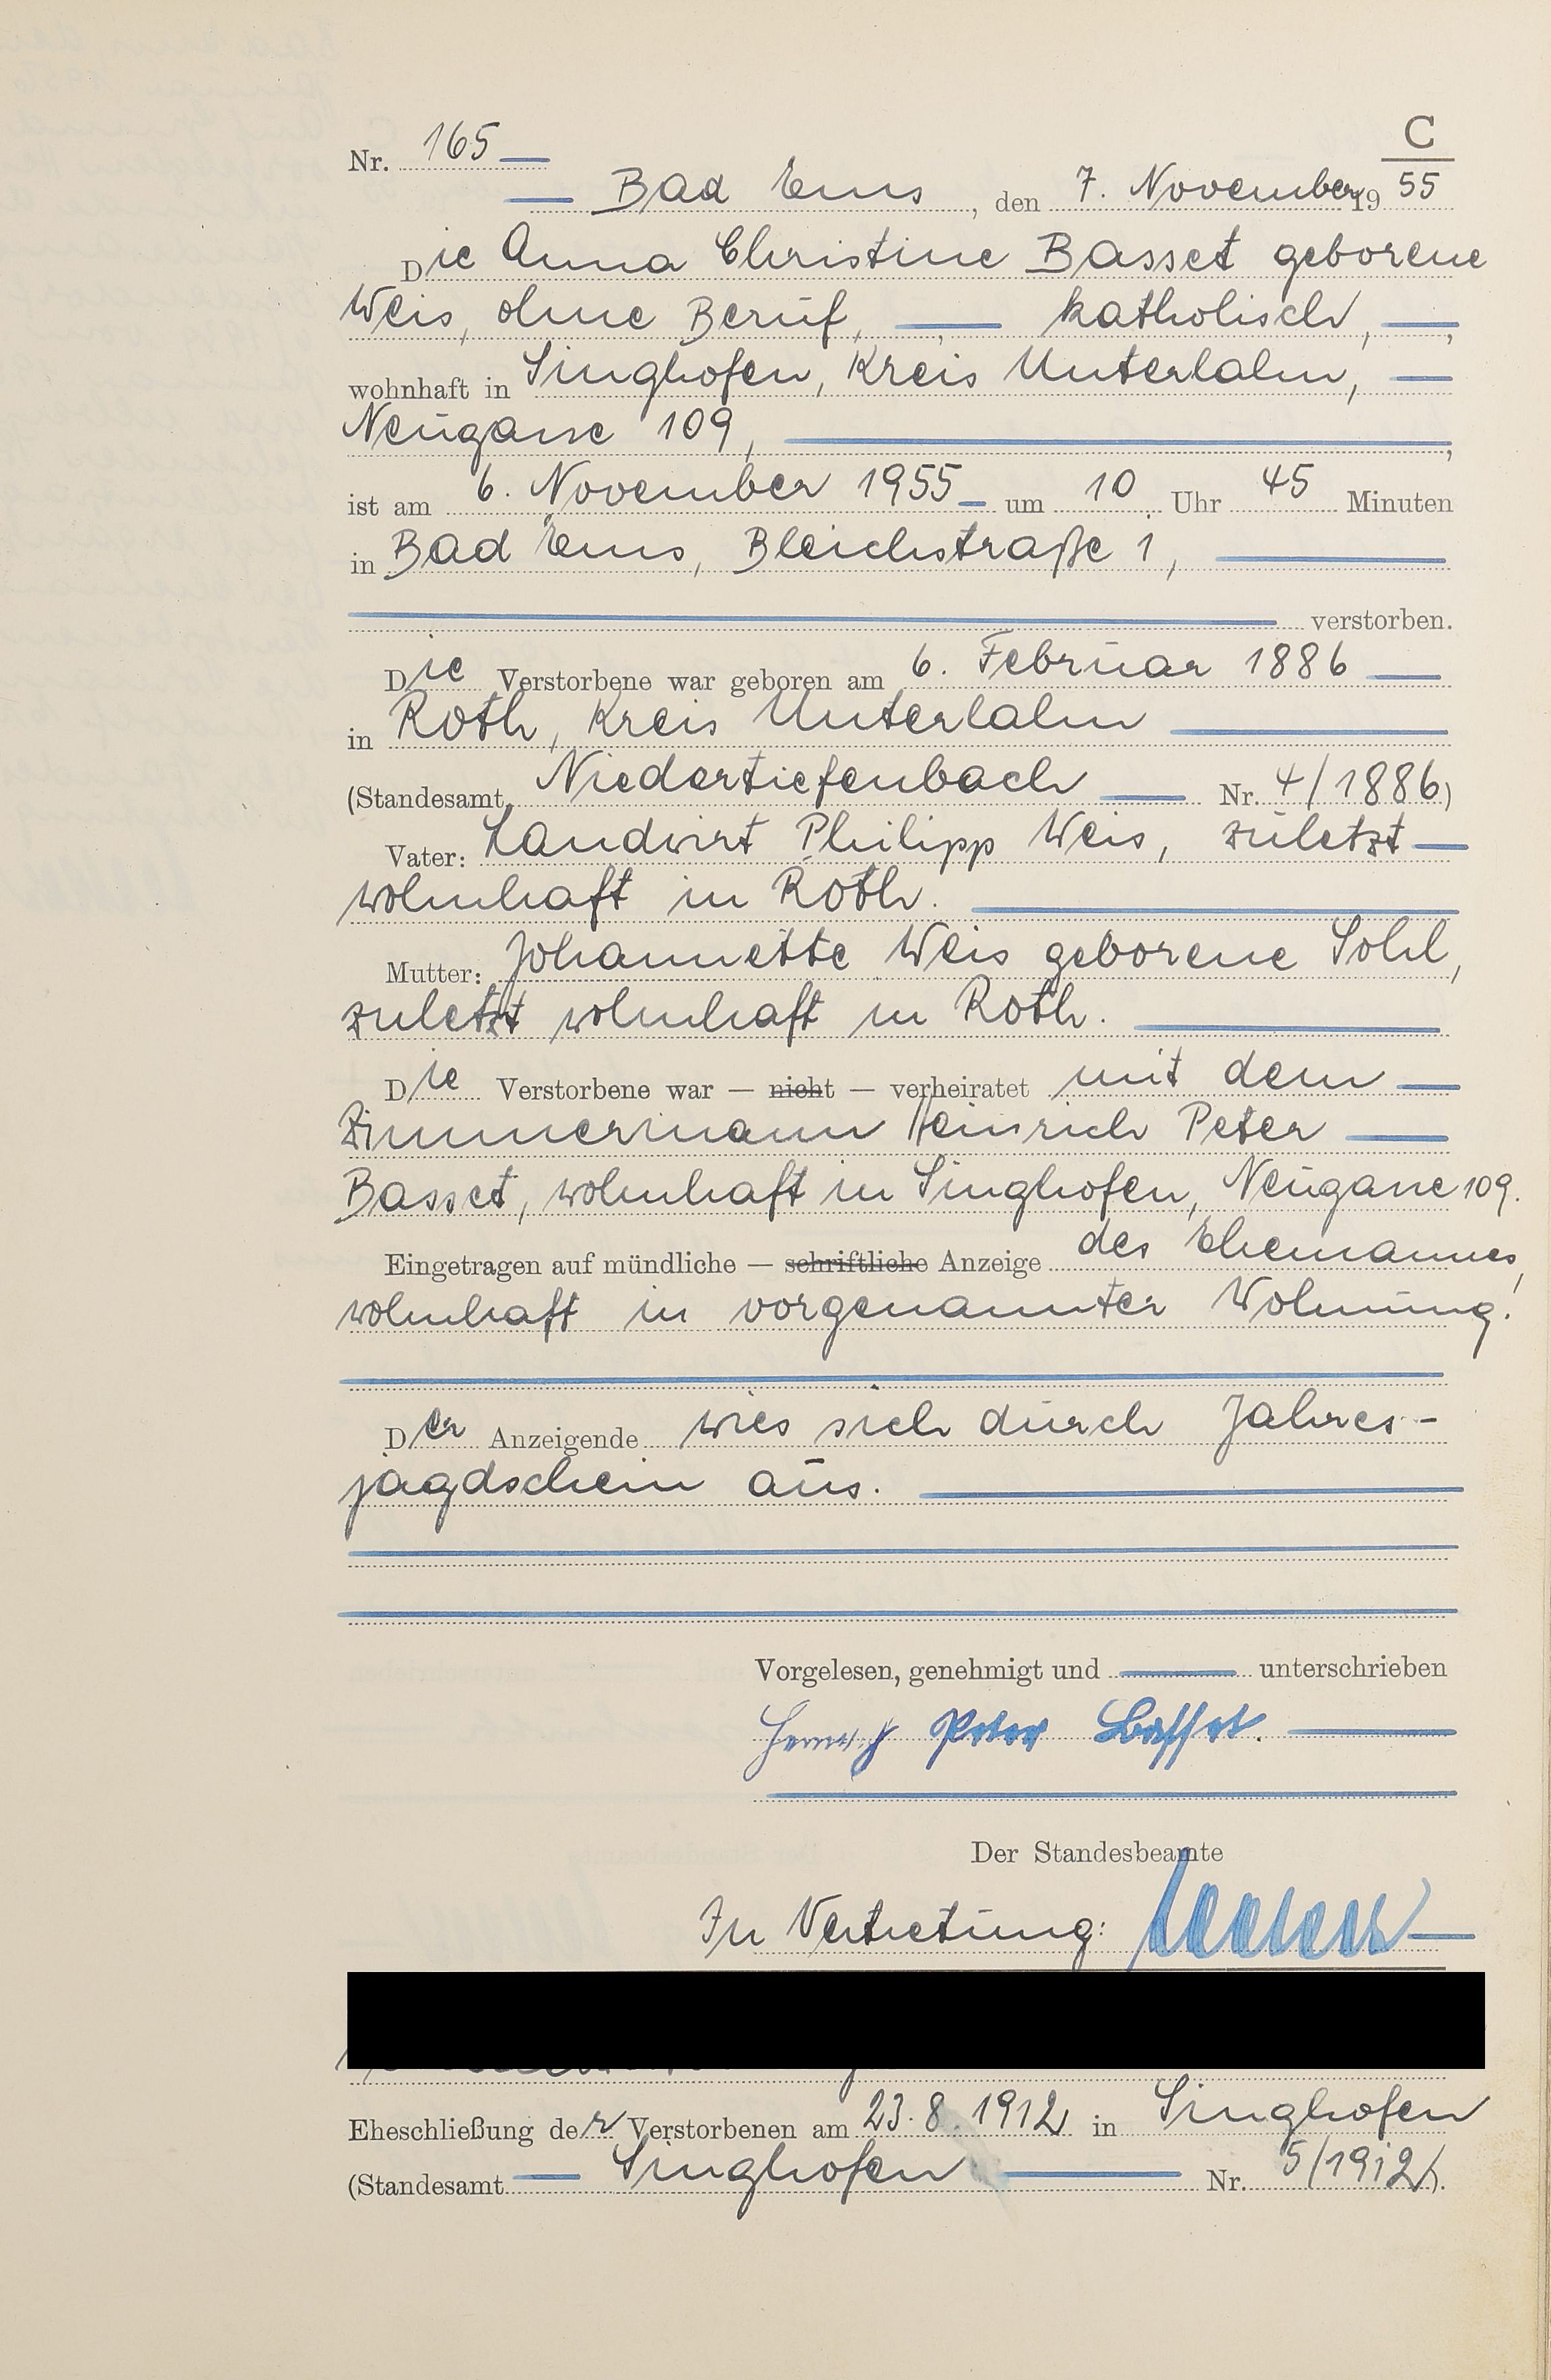 C
Nr. 165
Bad Ems, den 7. November 1955
Die Anna Christine Basset geborene
Weis, ohne Beruf, katholisch,
wohnhaft in Singhofen, Kreis Unterlahn,
Neugasse 109,
ist am 6. November 1955 um 10 Uhr 45 Minuten
in Bad Ems, Bleichstraße 1,
verstorben.
Die Verstorbene war geboren am 6. Februar 1886
in Roth, Kreis Unterlahn
(Standesamt Niedertiefenbach Nr. 4/1886)
Vater: Landwirt Philipp Weis, zuletzt
wohnhaft in Roth.
Mutter: Johannette Weis geborene Sohl,
zuletzt wohnhaft in Roth.
Die Verstorbene war — nicht — verheiratet mit dem
Zimmermann Heinrich Peter
Basset, wohnhaft in Singhofen, Neugasse 109.
Eingetragen auf mündliche — schriftliche Anzeige des Ehemannes,
wohnhaft in vorgenannter Wohnung.
Der Anzeigende wies sich durch Jahres-
jagdschein aus.
Vorgelesen, genehmigt und unterschrieben
Heinrich Peter Basset.
Der Standesbeamte
In Vertretung:
Eheschließung der Verstorbenen am 23.8.1912 in Singhofen
(Standesamt Singhofen Nr. 5/1912).